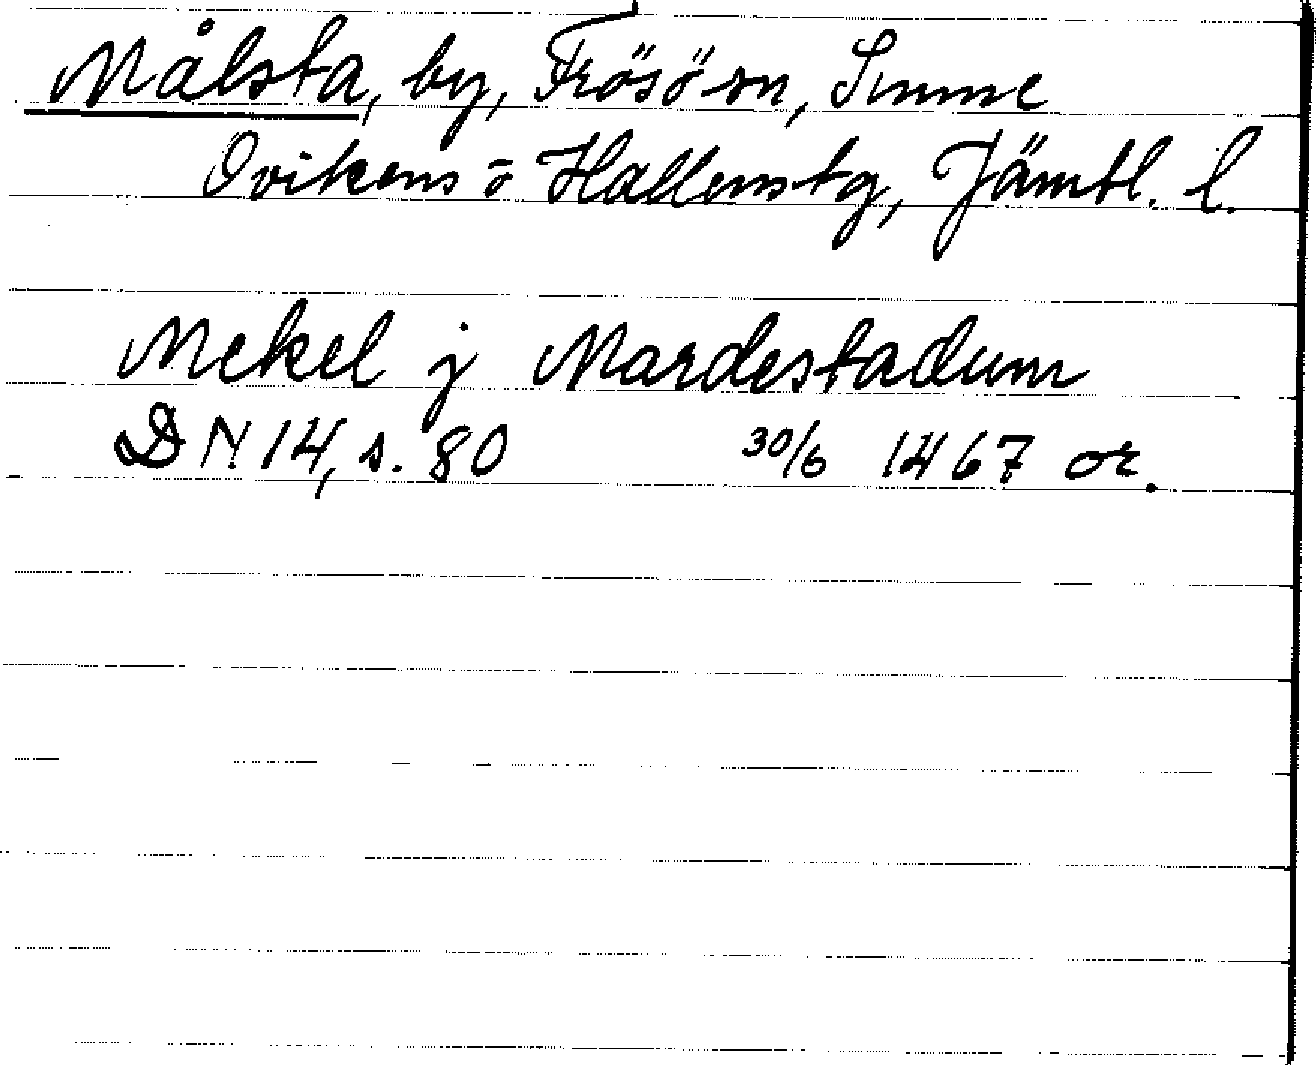 Målsta, by, Frösö sn, Sunne
Ovikens o Hallens tg, Jämtl. l.
Mekel j Mardestadum
DN 14, s. 80 30/6 1467 or.